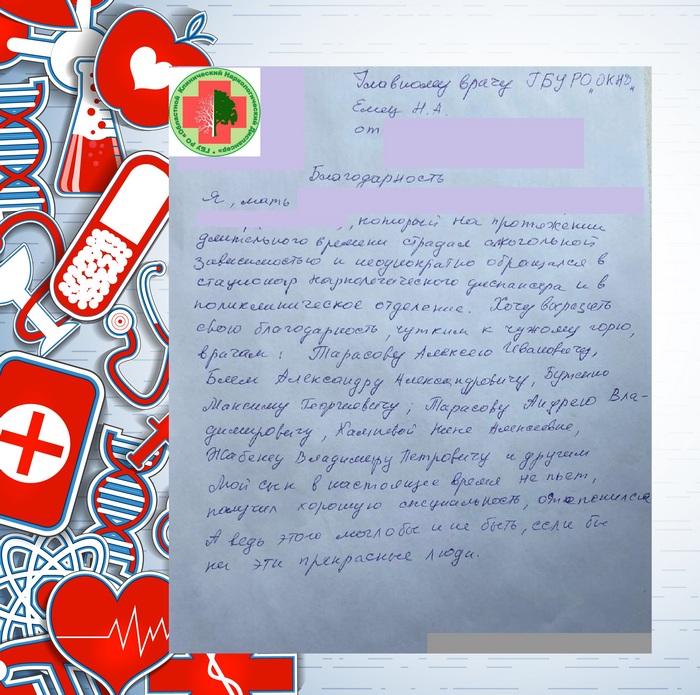 ГБУ РО «Областной Клинический Наркологический Диспансер»
Главному врачу ГБУ РО „ОКНД"
Емец Н.А.
от
Благодарность
Я, мать
, который на протяжении
длительного времени страдал алкогольной
зависимостью и неоднократно обращался в
стационар наркологического диспансера и в
поликлиническое отделение. Хочу выразить
свою благодарность, чутким к чужому горю,
врачам: Тарасову Алексею Ивановичу,
Александру Александровичу,
Максиму Георгиевичу, Тарасову Андрею Вла-
димировичу, Алексеевне,
Владимиру Петровичу и другим
Мой сын в настоящее время не пьет,
получил хорошую специальность, остепенился
А ведь этого могло бы и не быть, если бы
не эти прекрасные люди.